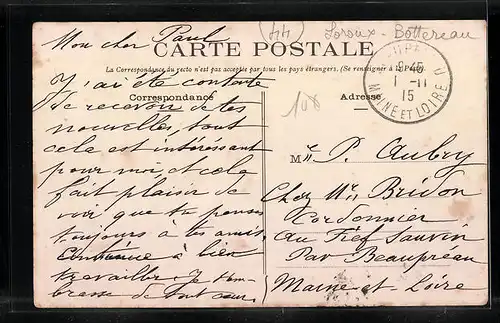 44 Loroux-Bottereau
Mon cher Paul
CARTE POSTALE
La Correspondance au recto n'est pas acceptée par tous les pays étrangers. (Se renseigner à la Poste).
Correspondance
Adresse
9-45
1-11
15
MAINE ET LOIRE
108
J'ai été contente
de recevoir de tes
nouvelles, tout
cela est intéressant
pour moi, et cela
fait plaisir de
voir que tu penses
toujours à tes amis.
Continue à bien
travailler. Je t'em-
brasse de tout cœur.
Mr P. Aubry
Chez Mr Bridon
Cordonnier
au Fief Sauvin
Par Beaupreau
Maine-et-Loire